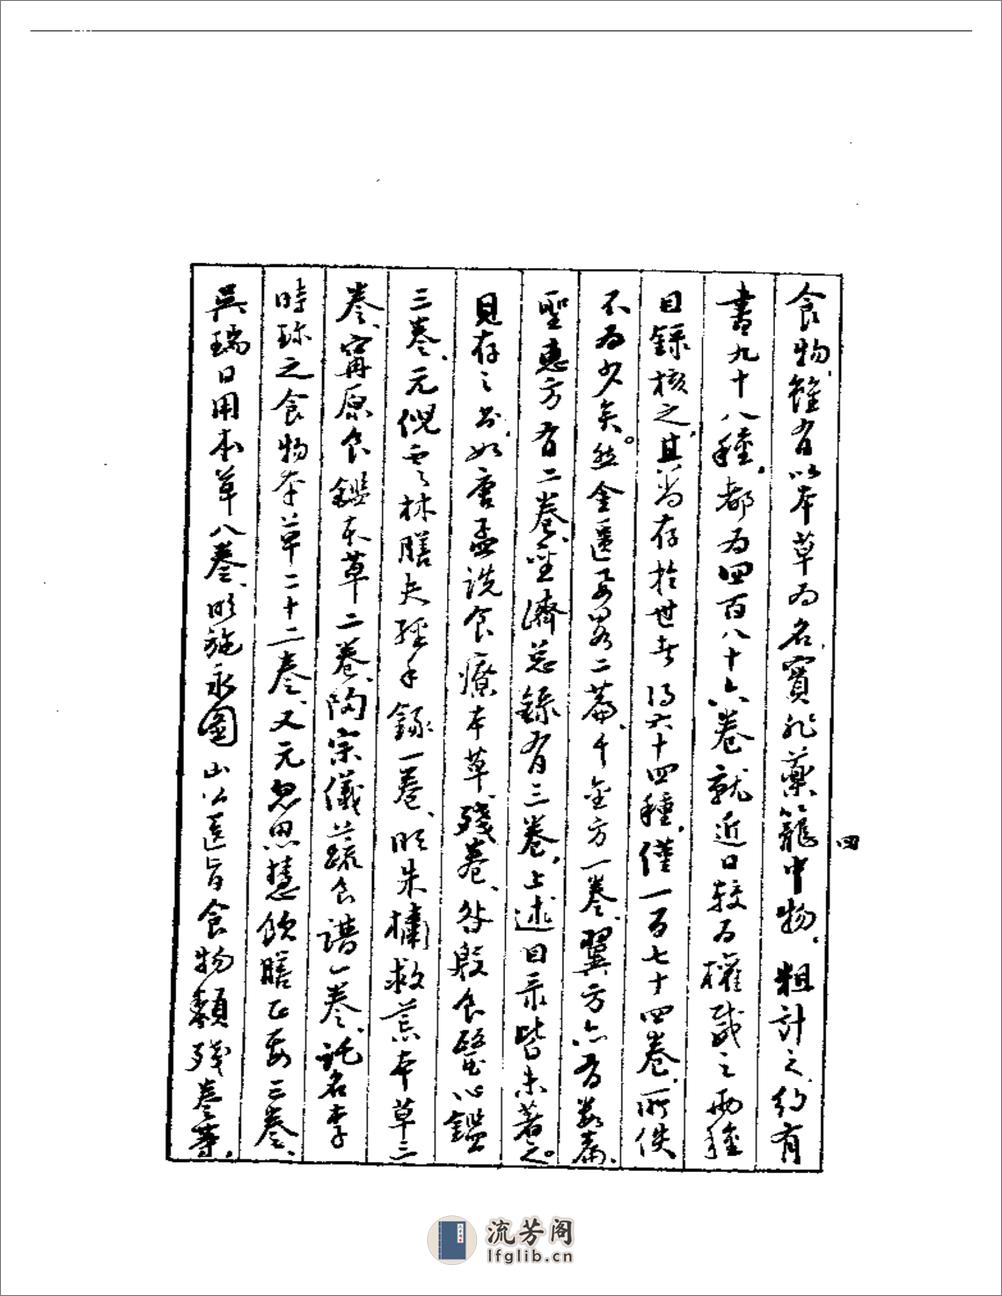 食物，雖有以本草為名，實非藥籠中物，粗計之，約有
書九十八種，都為四百八十六卷，就近日較為權威之兩種
目錄核之，其尚存於世者，得六十四種，僅一百七十四卷，所佚
不為少矣。然金匱要畧二篇、千金方一卷、翼方亦有數篇、
聖惠方有二卷、聖濟總錄有三卷，上述目录皆未著之。
見存之书，如唐孟詵食療本草殘卷、昝殷食醫心鑑
三卷、元倪雲林膳夫經手錄一卷、明朱橚救荒本草三
卷、寗原食鑑本草二卷、陶宗儀蔬食譜一卷、託名李
時珍之食物本草二十二卷、又元忽思慧飲膳正要三卷、
吳瑞日用本草八卷、明施永圖山公醫旨食物類殘卷等，
四
流芳阁
lfglib.cn